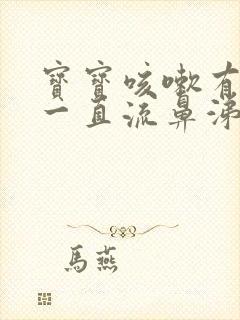 寶寶咳嗽有
一直流鼻涕
馬燕